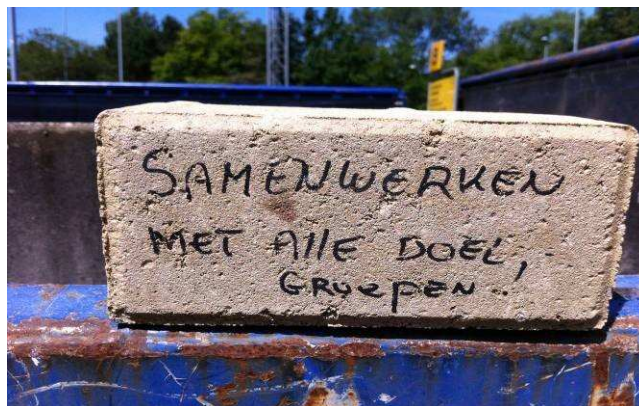 SAMENWERKEN
MET AllE DOEL,
GRuepEN.